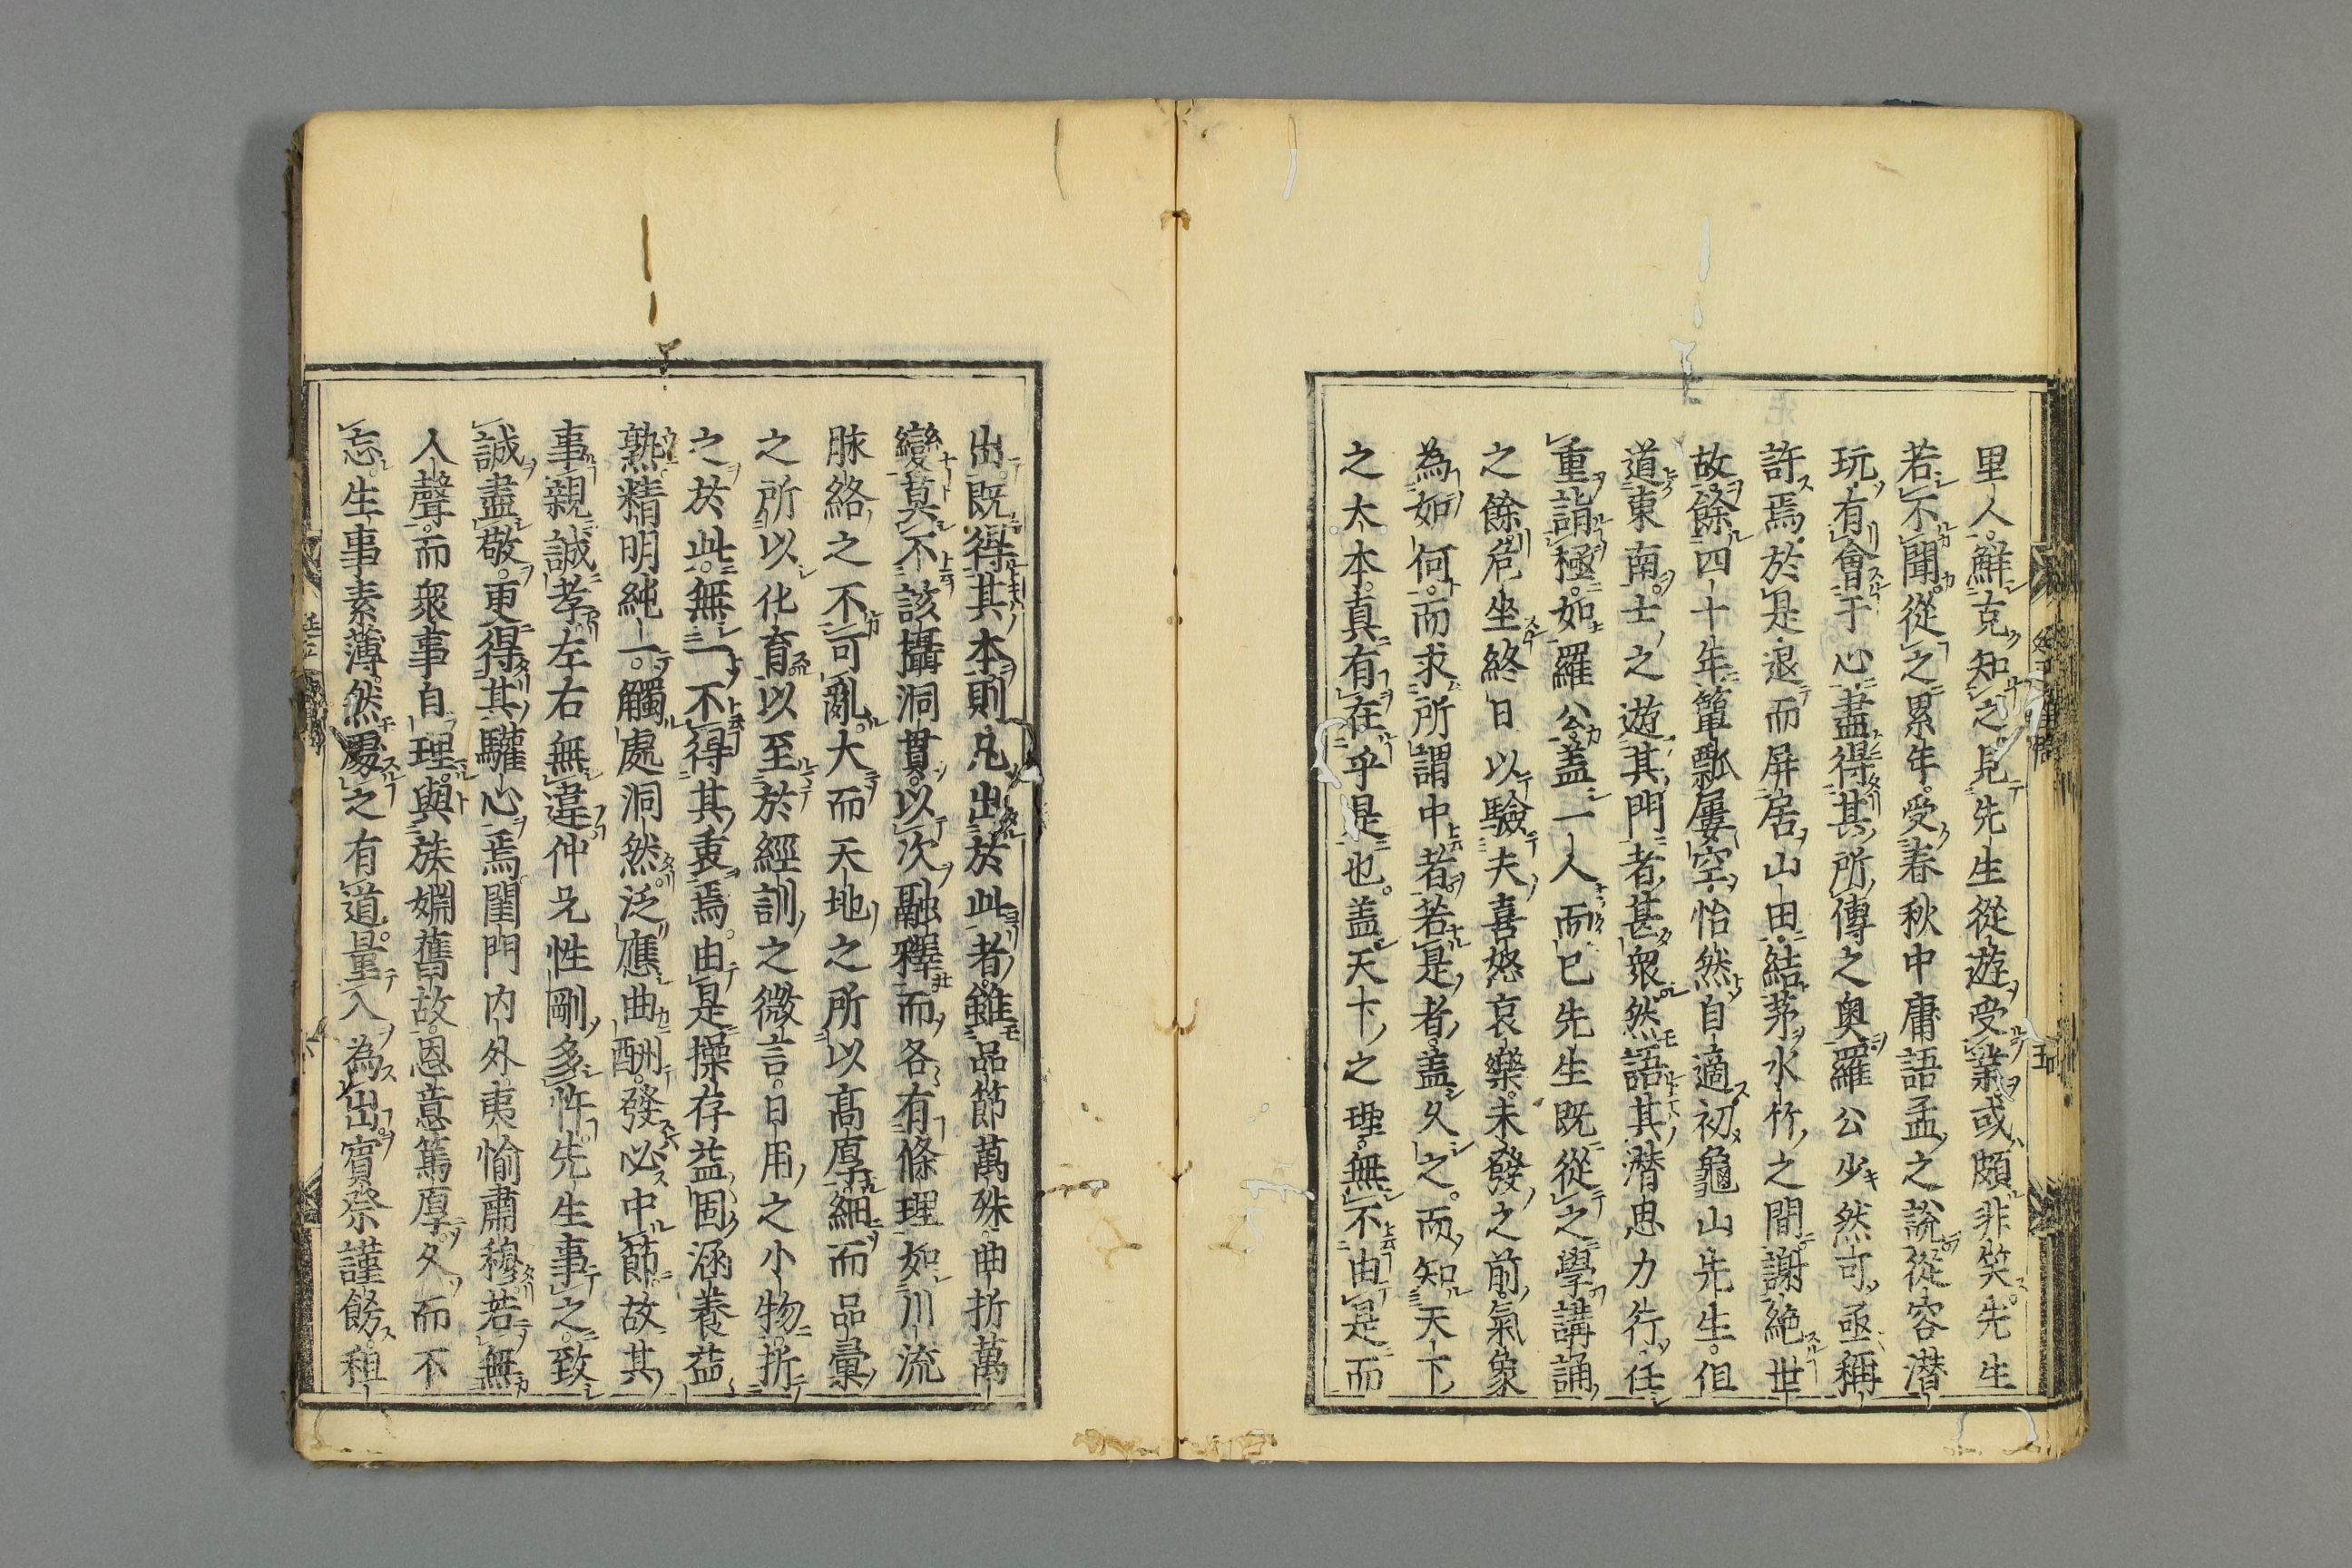 里人鮮克知之見先生從遊受業或頗非笑先生
若不聞從之累年受春秋中庸語孟之說從容潜
玩有會于心盡得其所傳之奥羅公少然可亟稱
許焉於是退而屏居山田結茅水竹之間謝絶世
故餘四十年簞瓢屢空怡然自適初龜山先生但
道東南士之遊其門者甚衆然語其潜思力行任
重詣極如羅公盖一人而已先生既從之學講誦
之餘危坐終日以驗夫喜怒哀樂未發之前氣象
為如何而求所謂中者若是者盖久之而知天下
之大本真有在乎是也盖天下之理無不由是而
出既得其本則凡出於此者雖品節萬殊曲折萬
變莫不該攝洞貫以次融釋而各有條理如川流
脉絡之不可亂大而天地之所以高厚細而品彙
之所以化育以至於經訓之微言日用之小物折
之於此無一不得其衷焉由是操存益固涵養益
熟精明純一觸處洞然泛應曲酬發必中節故其
事親誠孝左右無違仲兄性剛多忤先生事之致
誠盡敬更得其驩心焉閨門内外夷愉肅穆若無
人聲而衆事自理與族婣舊故恩意篤厚久而不
忘生事素薄然處之有道量入為出賓祭謹飭租